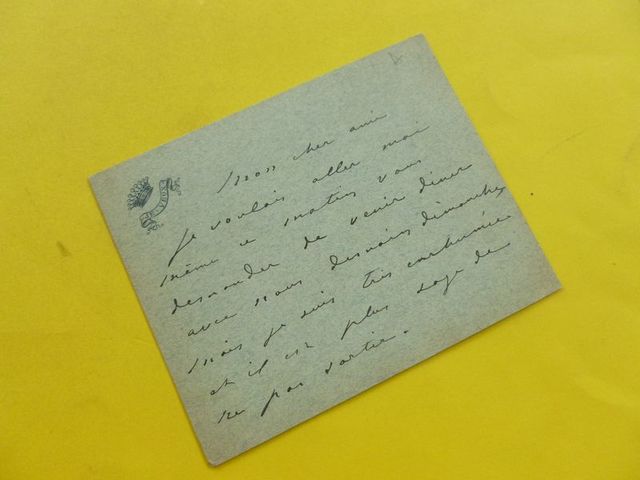 Mon cher ami
je voulais aller moi
même ce matin vous
demander de venir diner
avec nous demain dimanche
mais je suis très enrhumée
et il est plus sage de
ne pas sortir.